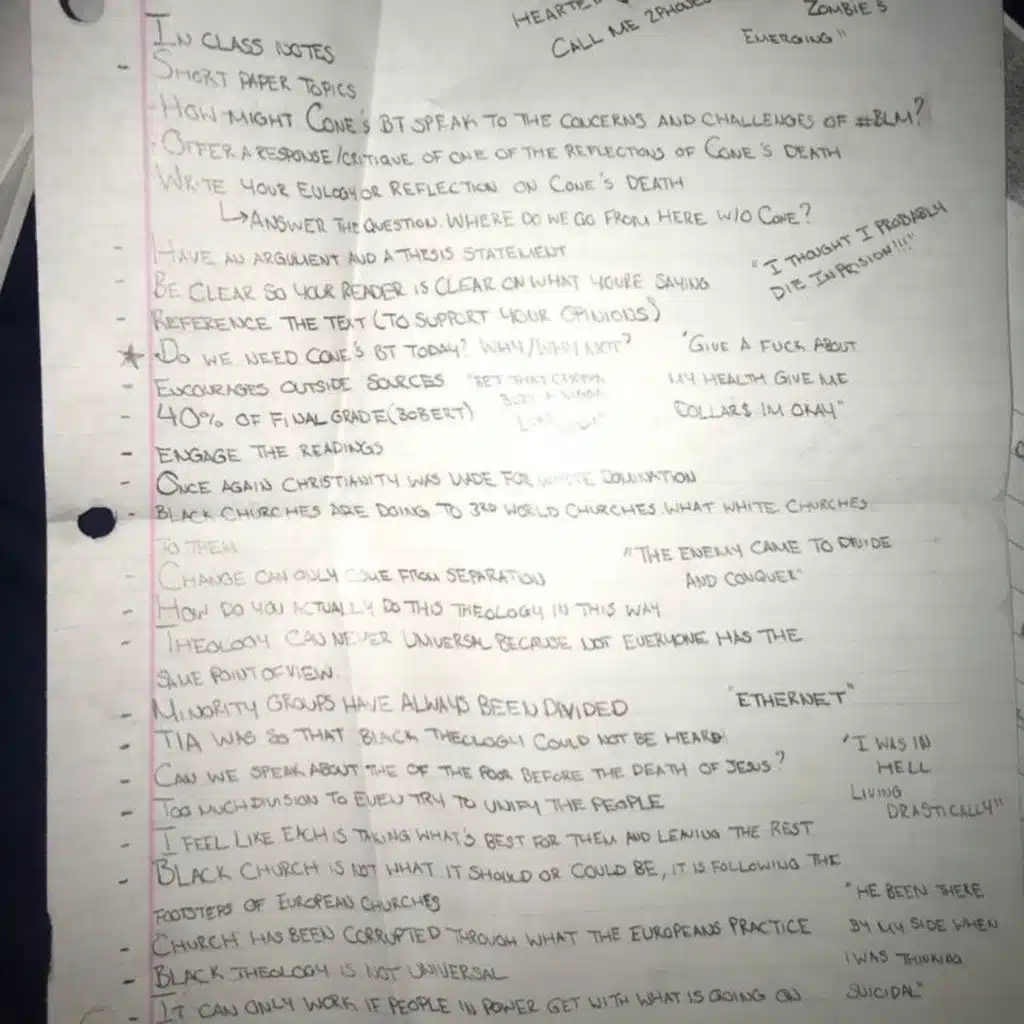 HEARTED
ZOMBIE'S
CALL ME 2PHONES
EMERGING"
IN CLASS NOTES
- SHORT PAPER TOPICS
- HOW MIGHT CONE'S BT SPEAK TO THE CONCERNS AND CHALLENGES OF #BLM?
- OFFER A RESPONSE/CRITIQUE OF ONE OF THE REFLECTIONS OF CONE'S DEATH
WRITE YOUR EULOGY OR REFLECTION ON CONE'S DEATH
↳ ANSWER THE QUESTION. WHERE DO WE GO FROM HERE W/O CONE?
- HAVE AN ARGUMENT AND A THESIS STATEMENT
"I THOUGHT I PROBABLY
DIE IN PRISION!!!"
- BE CLEAR SO YOUR READER IS CLEAR ON WHAT YOURE SAYING
- REFERENCE THE TEXT (TO SUPPORT YOUR OPINIONS)
★ DO WE NEED CONE'S BT TODAY? WHY/WHY NOT? "GIVE A FUCK ABOUT
- ENCOURAGES OUTSIDE SOURCES "BET THAT MY HEALTH GIVE ME
- 40% OF FINAL GRADE (BOBERT) DOLLARS IM OKAY"
- ENGAGE THE READINGS
- ONCE AGAIN CHRISTIANITY WAS MADE FOR WHITE DOMINATION
- BLACK CHURCHES ARE DOING TO 3RD WORLD CHURCHES WHAT WHITE CHURCHES
TO THEM "THE ENEMY CAME TO DIVIDE
- CHANGE CAN ONLY COME FROM SEPARATION AND CONQUER"
- HOW DO YOU ACTUALLY DO THIS THEOLOGY IN THIS WAY
- THEOLOGY CAN NEVER UNIVERSAL BECAUSE NOT EVERYONE HAS THE
SAME POINT OF VIEW.
- MINORITY GROUPS HAVE ALWAYS BEEN DIVIDED "ETHERNET"
- TIA WAS SO THAT BLACK THEOLOGY COULD NOT BE HEARD "I WAS IN
HELL
- CAN WE SPEAK ABOUT THE OF THE POOR BEFORE THE DEATH OF JESUS?
LIVING
- TOO MUCH DIVISION TO EVEN TRY TO UNIFY THE PEOPLE DRASTICALLY"
- I FEEL LIKE EACH IS TAKING WHAT'S BEST FOR THEM AND LEAVING THE REST
- BLACK CHURCH IS NOT WHAT IT SHOULD OR COULD BE, IT IS FOLLOWING THE
FOOTSTEPS OF EUROPEAN CHURCHES "HE BEEN THERE
- CHURCH HAS BEEN CORRUPTED THROUGH WHAT THE EUROPEANS PRACTICE BY MY SIDE WHEN
- BLACK THEOLOGY IS NOT UNIVERSAL I WAS THINKING
- IT CAN ONLY WORK IF PEOPLE IN POWER GET WITH WHAT IS GOING ON SUICIDAL"